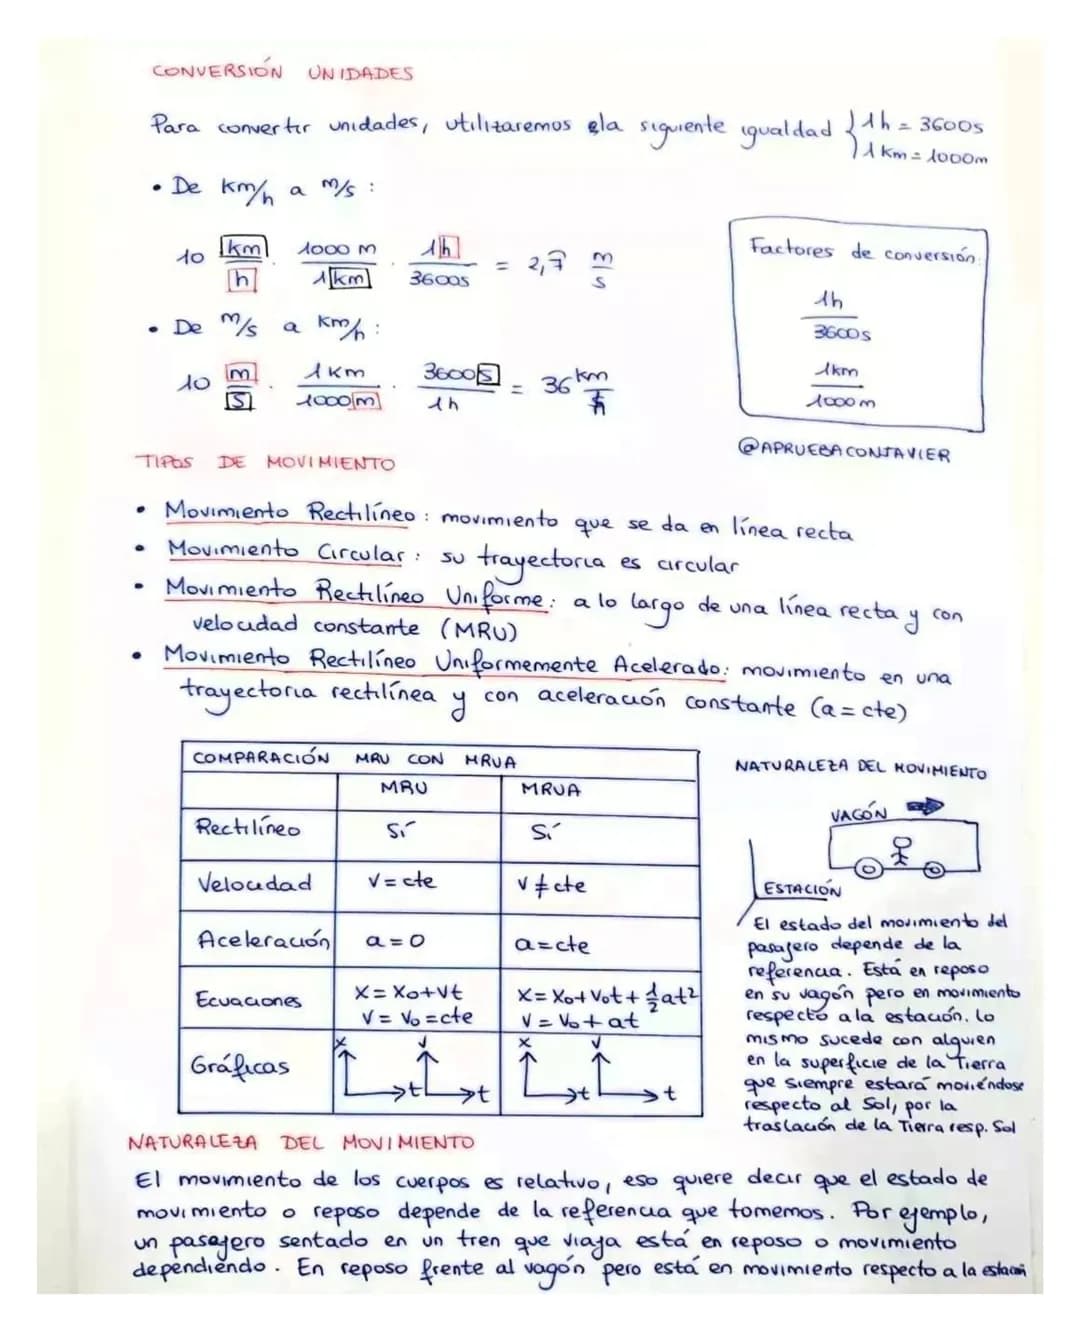 CONVERSIÓN UNIDADES
Para convertir unidades, utilizaremos la siguiente igualdad { 1h = 3600s
1 km = 1000m
• De km/h a m/s :
10 km/h · 1000 m/1 km · 1h/3600s = 2,7 m/s
• De m/s a km/h :
10 m/s · 1 km/1000 m · 3600 s/1h = 36 km/h
Factores de conversión:
1h
3600s
1km
1000m
@APRUEBACONJAVIER
TIPOS DE MOVIMIENTO
• Movimiento Rectilíneo : movimiento que se da en línea recta
• Movimiento Circular : su trayectoria es circular
• Movimiento Rectilíneo Uniforme: a lo largo de una línea recta y con
velocidad constante (MRU)
• Movimiento Rectilíneo Uniformemente Acelerado: movimiento en una
trayectoria rectilínea y con aceleración constante (a = cte)
COMPARACIÓN MRU CON MRUA
MRU MRUA
Rectilíneo Sí Sí
Velocidad V = cte V ≠ cte
Aceleración a = 0 a = cte
Ecuaciones X = X0 + Vt X = X0 + V0t + 1/2 at²
V = V0 = cte V = V0 + at
Gráficas x t v t x t v t
NATURALEZA DEL MOVIMIENTO
VAGÓN
ESTACIÓN
El estado del movimiento del
pasajero depende de la
referencia. Está en reposo
en su vagón pero en movimiento
respecto a la estación. Lo
mismo sucede con alguien
en la superficie de la Tierra
que siempre estará moviéndose
respecto al Sol, por la
traslación de la Tierra resp. Sol
NATURALEZA DEL MOVIMIENTO
El movimiento de los cuerpos es relativo, eso quiere decir que el estado de
movimiento o reposo depende de la referencia que tomemos. Por ejemplo,
un pasajero sentado en un tren que viaja está en reposo o movimiento
dependiendo. En reposo frente al vagón pero está en movimiento respecto a la estación